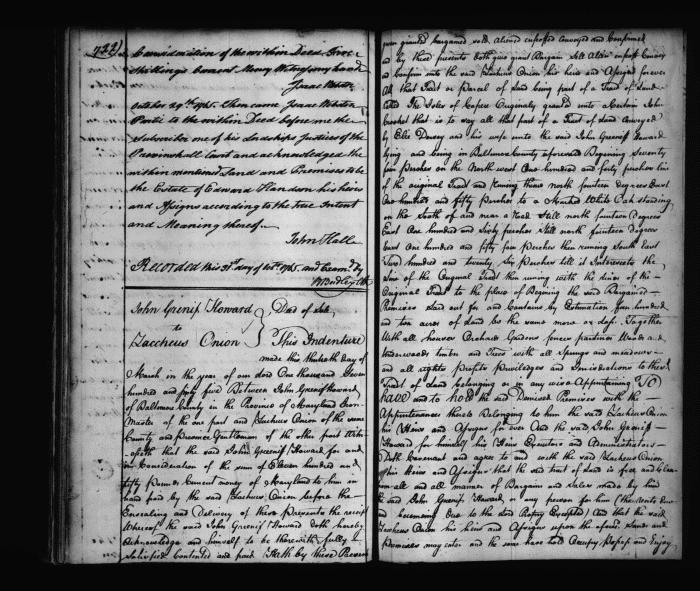 722)
Consideration of the within Deed Five
Shillings Current Money Witness my hand
Isaac Webster
October 29th 1765. Then came Isaac Webster
Party to the within Deed before me the
Subscriber one of his Lordships Justices of the
Provincial Court and acknowledged the
within mentioned Land and Premises to be
the Estate of Edward Flanders his heirs
and Assigns according to the True Intent
and Meaning thereof
John Hall
Recorded this day of 1765. and by
John Grenif Howard
to
Zaccheus Onion
Deed of Sale,
This Indenture
made this thirtieth day of
March in the year of our Lord One thousand Seven
hundred and sixty five Between John Greenif Howard
of Baltimore County in the Province of Maryland Iron
Master of the one part and Zacheus Onion of the same
County and Province Gentleman of the other part Witn
esseth that the said John Greeniff Howard for and
in Consideration of the sum of Eleven hundred and
fifty Pounds Current money of Maryland to him in
hand paid by the said Zacheus Onion before the
Ensealing and Delivery of these Presents the receipt
Whereof the said John Greeniff Howard doth hereby
acknowledge and himself to be therewith fully
Satisfied Contented and paid Hath by these Presents
given granted bargained sold Aliened enfeoffed Conveyed and Confirmed
and by these presents doth give grant Bargain Sell Alien enfeoff Convey
and Confirm unto the said Zacheus Onion his heirs and Assigns forever
All that Part or Parcel of Land being part of a Tract of Land
called The Isles of Capere Originally granted unto a Certain John
Crocket that is to say all that part of a Tract of Land Conveyed
by and his wife unto the said John Greeniff Howard
lying and being in Baltimore County aforesaid Begining Seventy
four Perches on the North west One hundred and forty perches line
of the original Tract and running thence north fourteen Degrees East
One hundred and fifty Perches to a Marked White Oak standing
on the South of and near a Road Still north fourteen Degrees
East One hundred and Sixty perches Still north fourteen degrees
East One hundred and fifty five Perches then runing South East
Two hundred and twenty Six Perches till it Intersects the
Line of the Original Tract then runing with the lines of the
Original Tract to the place of Begining the said Bargained
Premises Laid out for and Containing by Estimation five hundred
and ten acres of Land be the same more or less. Together
With all houses Orchards Gardens fences pastures Woods and
Underwoods timber and Trees with all Springs and meadows
and all rights Profits Priviledges and Immunities to this
Tract of Land belonging or in any wise Appertaining To
have and to hold the said Demised Premises with the
Appurtenances thereto Belonging to him the said Zacheus Onion
his Heirs and Assigns forever And the said John Greniff
Howard for himself his Heirs Executors and Administrators
Doth Covenant and agree to and with the said Zacheus Onion
his Heirs and Assigns that the said tract of Land is free and Clear
from all and all manner of Bargain and Sales made by him
the said John Greniff Howard or any person for him (the rents due
and becoming due to the Lord Proprietary Excepted) And that the said
Zacheus Onion his heirs and Assigns upon the aforesd Lands and
premises may enter and the same have hold Occupy Possess and Enjoy